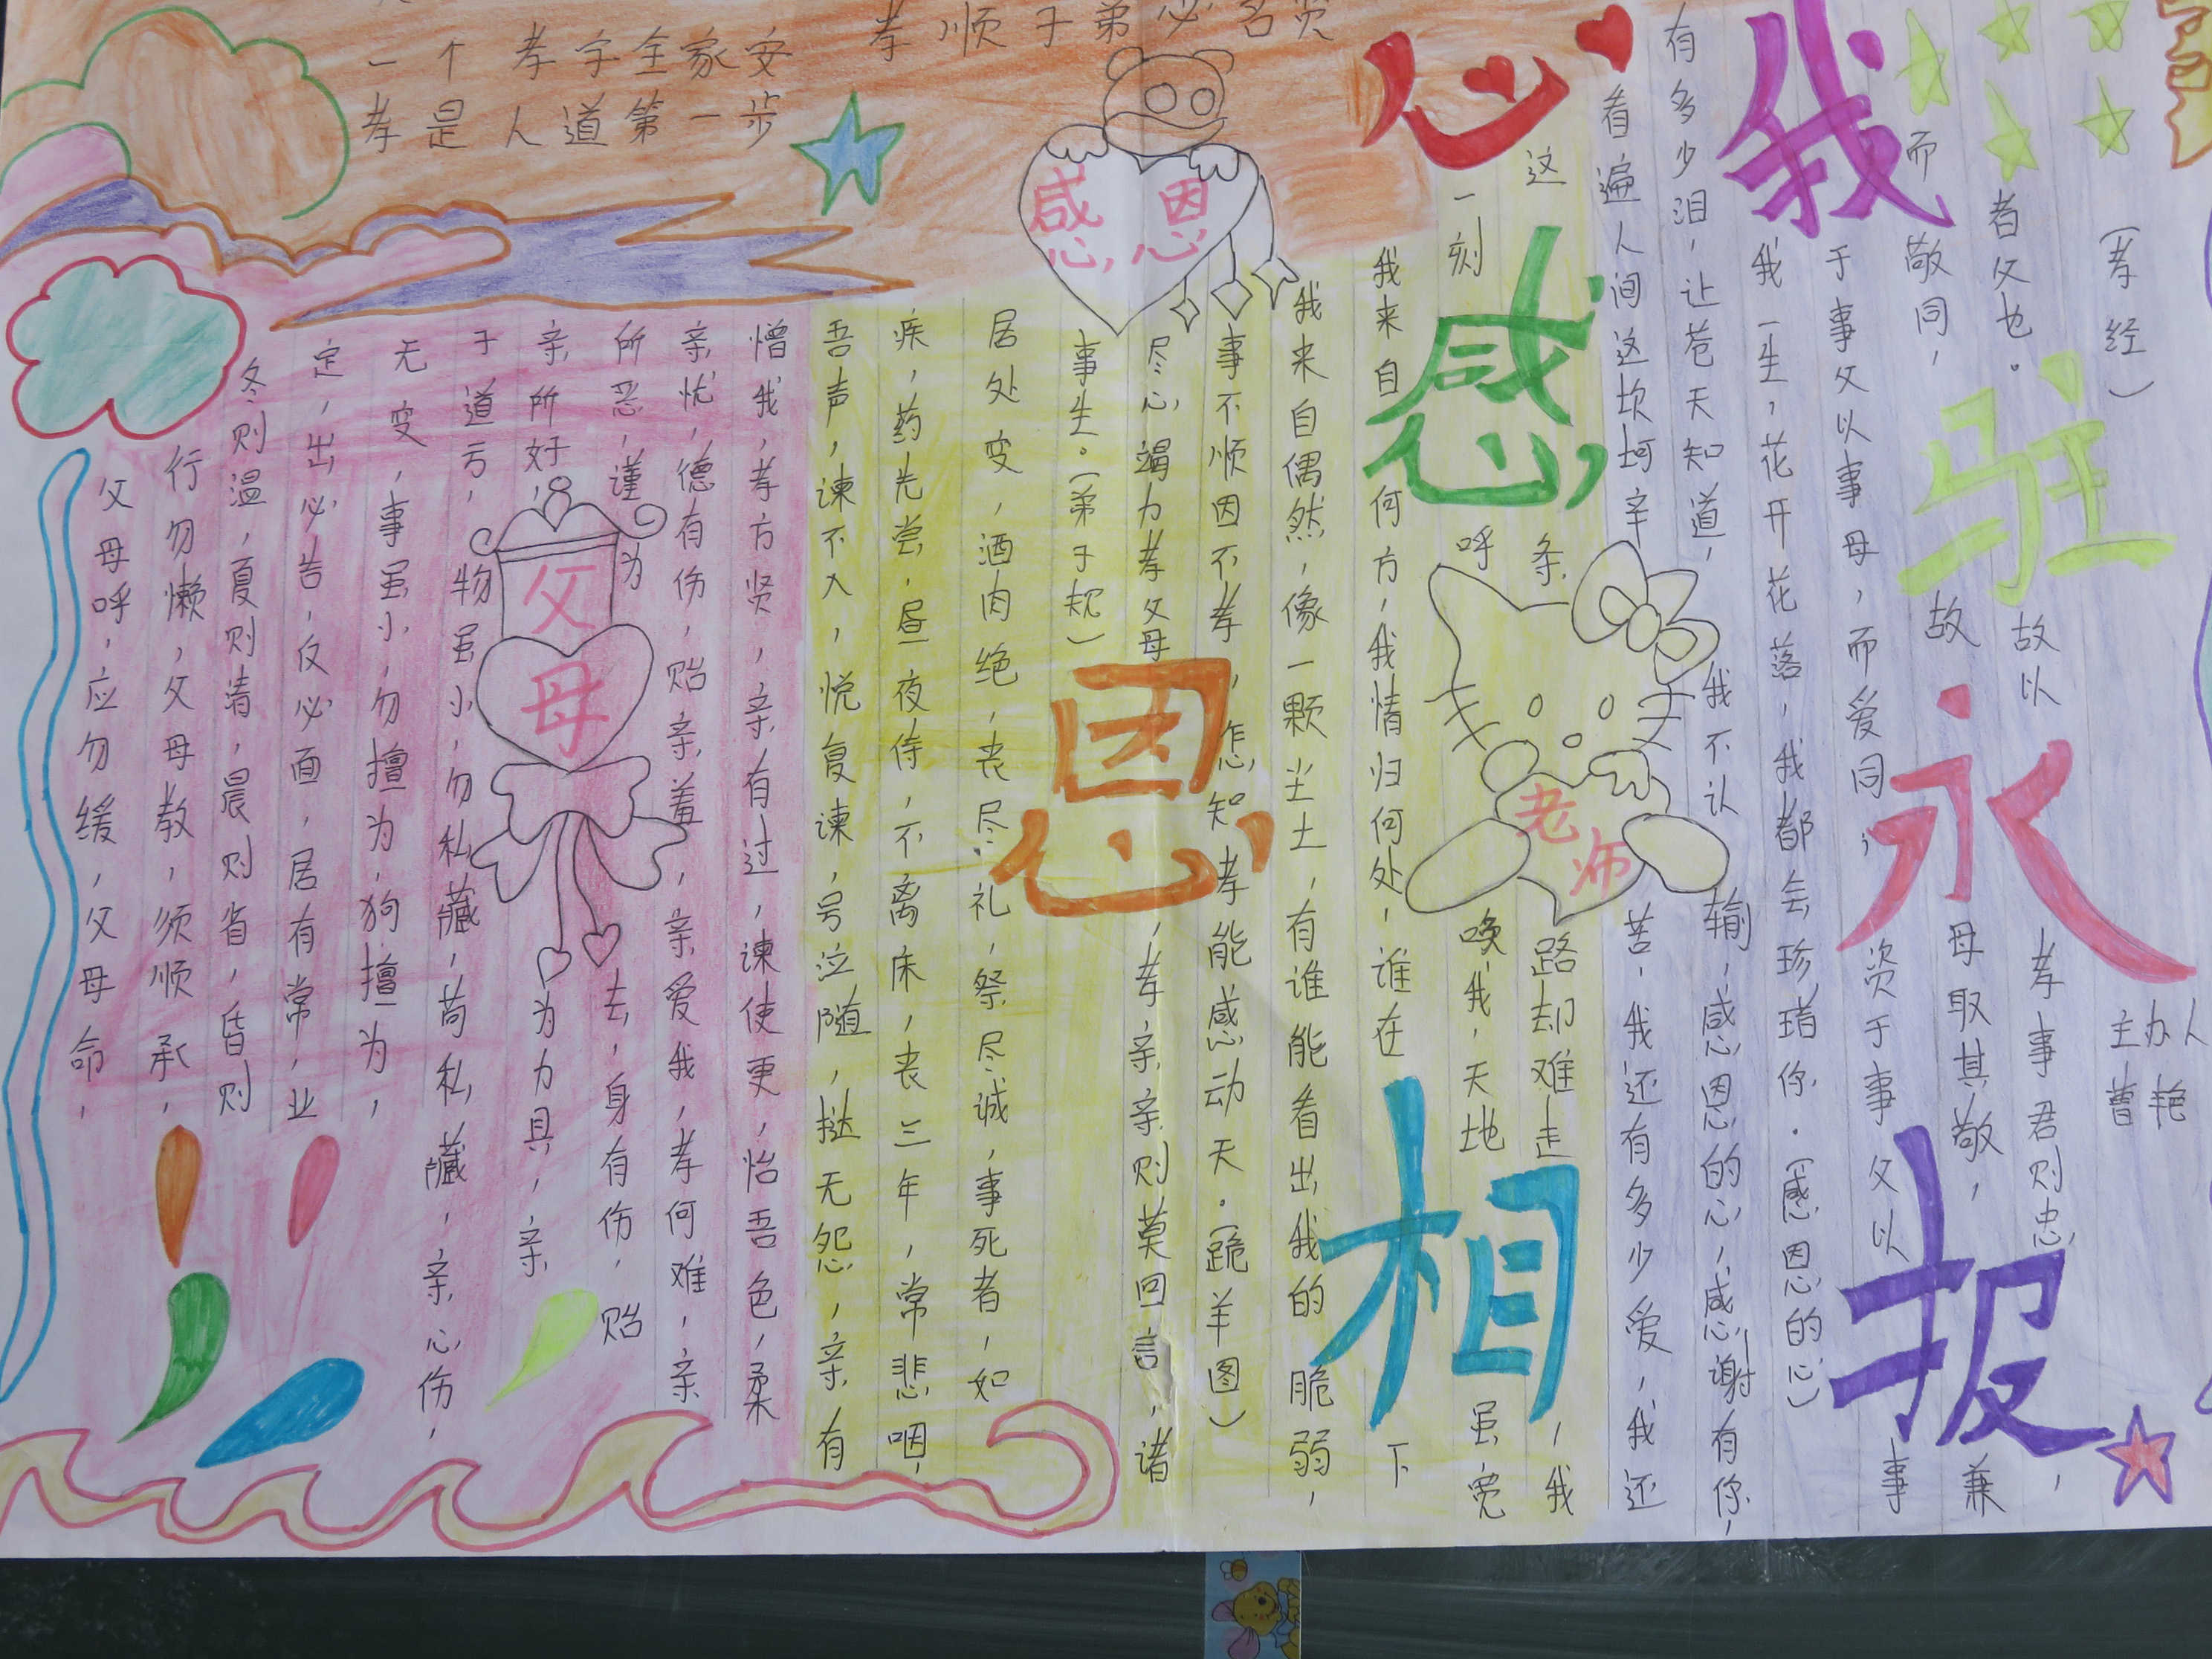 一个孝字全家安
孝顺子弟必名贤
孝是人道第一步
感恩
父母
老师
心
感
恩
相
我
驻
永
报
父母呼，应勿缓，父母命，
行勿懒，父母教，须顺承，
冬则温，夏则清，晨则省，昏则
定，出必告，反必面，居有常，业
无变，事虽小，勿擅为，狗擅为，
于道亏，物虽小，勿私藏，苟私藏，亲心伤，
亲所好，为力具，亲
所恶，谨为去，身有伤，贻
亲忧，德有伤，贻亲羞，亲爱我，孝何难，亲
憎我，孝方贤，亲有过，谏使更，怡吾色，柔
吾声，谏不入，悦复谏，号泣随，挞无怨，亲有
疾，药先尝，昼夜侍，不离床，丧三年，常悲咽，
居处变，酒肉绝，丧尽礼，祭尽诚，事死者，如
事生。（弟子规）
尽心竭力孝父母，孝亲亲则莫回言，诸
事不顺因不孝，怎知孝能感动天。（跪羊图）
我来自偶然，像一颗尘土，有谁能看出我的脆弱，
我来自何方，我情归何处，谁在下
一刻呼唤我，天地虽宽
这条路却难走，我
看遍人间这坎坷辛苦，我还有多少爱，我还
有多少泪，让苍天知道，我不认输，感恩的心，感谢有你，
我一生，花开花落，我都会珍惜你。（感恩的心）
于事父以事母，而爱同；资于事父以事
而敬同，故母取其敬，兼
者父也。故以孝事君则忠，
（孝经）
主办人
曹艳